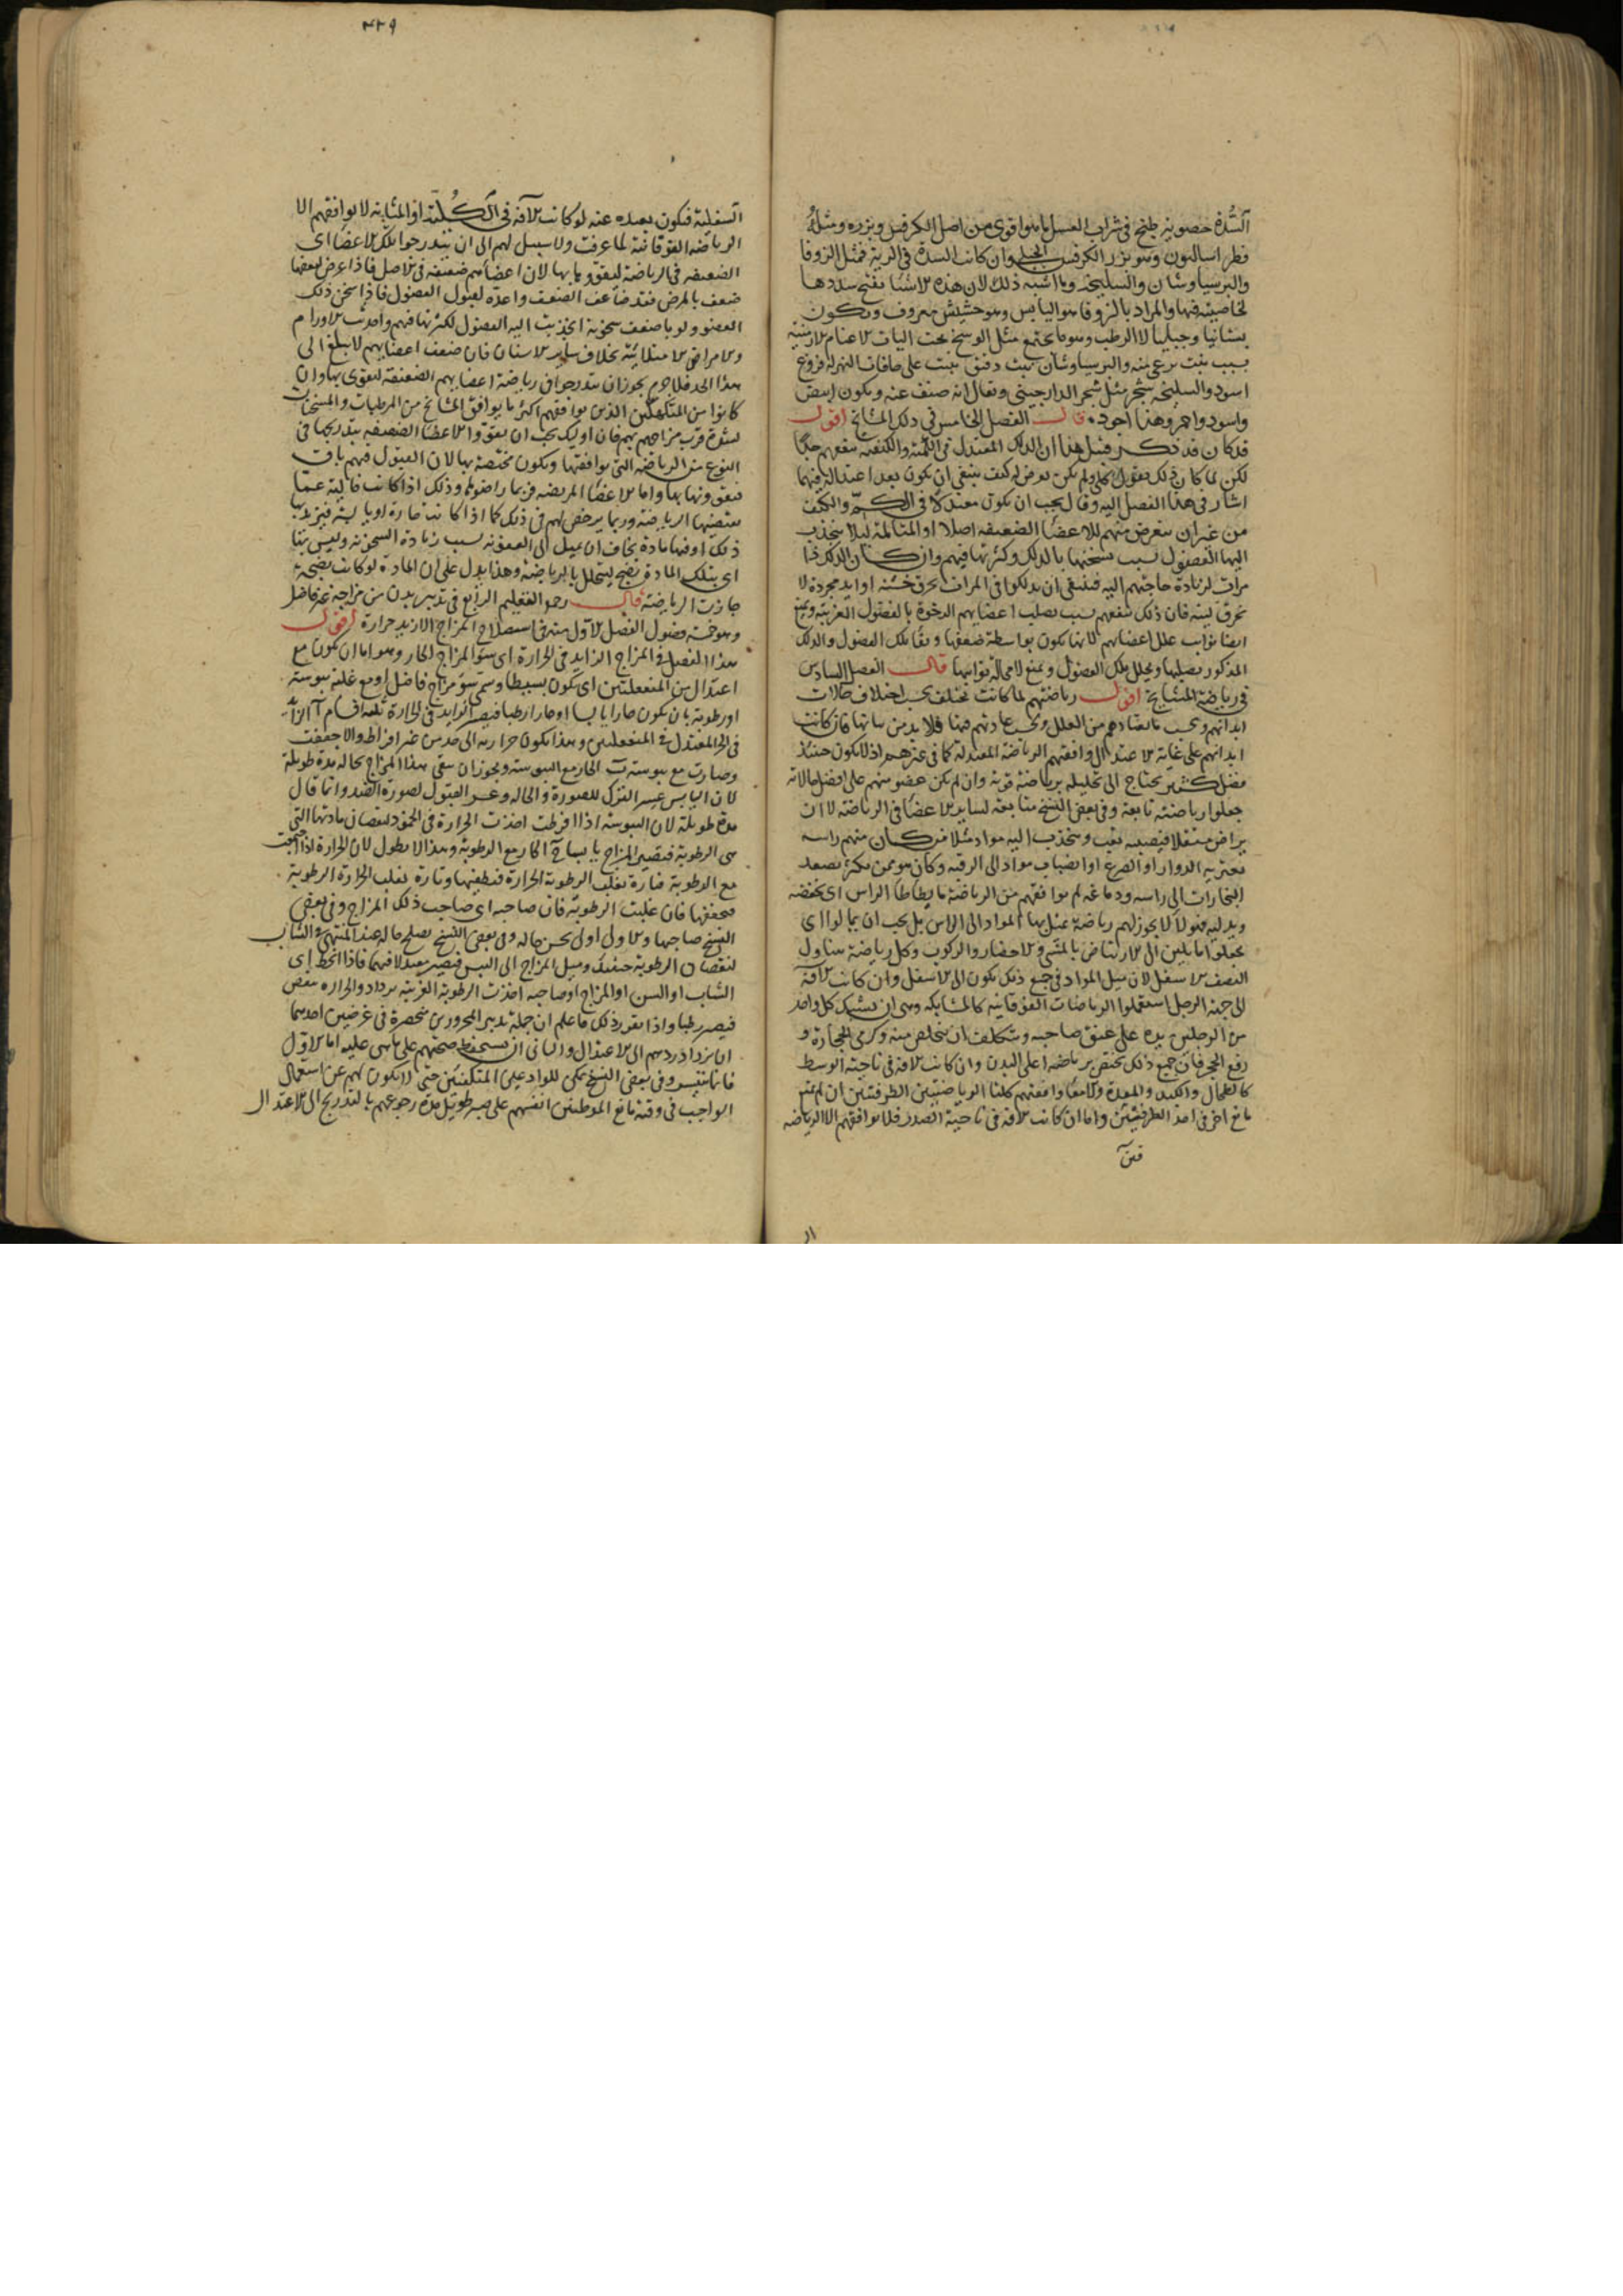 السدة خصوصية طبخ في شراب العسل اما هو اقوى من اصل الكرفس وبزره ومثله
فطراساليون وهو بزر الكرفس الجبلي وان كانت السدة في الرية فمثل الزوفا
والبرسياوشان والسليخة وما اشبه ذلك لان هذه الاشيا تفتح سددها
لخاصية فيها والمراد بالزوفا هو اليابس وهو حشيش معروف ويكون
بستانيا وجبليا لا الرطب وهو ما يجتمع مثل الوسخ تحت اليات الاغنام الارمنية
بسبب نبت ترعى منه والبرسياوشان نبت دقيق ينبت على حافات النهر له فروع
اسود والسليخة شجر مثل شجر الدارجيني ويقال انه صنف عنه ويكون ابيض
واسود واحمر وهذا اجود قال الفصل الخامس في دلك المشايخ اقول
قد كان قد ذكر قبل هذا ان الدلك المعتدل في الكمية والكيفية ينفعهم جدا
لكن لما كان ذلك بقول كلي ولم يكن تعرض له كيف ينبغي ان يكون بعد اعتداله فيهما
اشار في هذا الفصل اليه وقال يجب ان يكون معتدلا في الكم والكيف
من غير ان يتعرض منهم للاعضا الضعيفة اصلا او المتالمة ليلا ينجذب
اليها الفضول بسبب تسخنها بالدلك وكثرتها فيهم وان كان الدلك ذا
مرات لزيادة حاجتهم اليه فينبغي ان يدلكوا في المرات بخرق خشنة او ايد مجردة لا
بخرق لينة فان ذلك ينفعهم بسبب تصليب اعضايهم الرخوة بالفضول الغريبة ويمنع
ايضا نوايب علل اعضايهم لانها تكون بواسطة ضعفها وبقا تلك الفضول والدلك
المذكور يصلبها ويحلل تلك الفضول ويمنع لا محالة نوايبها قال الفصل السادس
في رياضة المشايخ اقول رياضتهم لما كانت تختلف بحسب اختلاف حالات
ابدانهم وبحسب ما يعتادهم من العلل وبحسب عادتهم فيها فلا بد من بيانها فان كانت
ابدانهم على غاية الاعتدال وافقتهم الرياضة المعتدلة كما في غيرهم اذ لا يكون حينئذ
فضل كثير يحتاج الى تحليله برياضة قوية وان لم يكن عضو منهم على افضل حالاته
جعلوا رياضته تابعة وفي بعض النسخ متابعة لساير الاعضا في الرياضة لا ان
يراض مستقلا فيصيبه تعب وينجذب اليه مواد مثلا من كان منهم راسه
يعتريه الدوار او الصرع او انصباب مواد الى الرقبة وكان هو ممن يكثر تصعد
البخارات الى راسه ودماغه لم يوافقهم من الرياضة ما يطاطا الراس اي يخفضه
ويدليه فهولا لا يجوز لهم رياضة تميل بها المواد الى الراس بل يجب ان يمالوا اي
يجعلوا مايلين الى الارتياض بالمشي والاحضار والركوب وكل رياضة تتناول
النصف الاسفل لان ميل المواد في جميع ذلك يكون الى الاسفل وان كانت الافة
الى جهة الرجل استعملوا الرياضات الفوقانية كالمشابكة وهي ان يشبك كل واحد
من الرجلين يده على عنق صاحبه ويتكلف ان يتخلص منه وكرمي الحجارة و
رفع الحجر فان جميع ذلك يختص برياضة اعلى البدن وان كانت الافة في ناحية الوسط
كالطحال والكبد والمعدة والامعا وافقتهم كلتا الرياضتين الطرفيتين ان لم يمنع
مانع اخر في احد الطرفيتين واما ان كانت الافة في ناحية الصدر فلا يوافقهم الا الرياضة
٤٣٩
السفلية فيكون بعيده عنه لو كانت الافة في الكلية او المثانة لا يوافقهم الا
الرياضة الفوقانية لما عرفت ولا سبيل لهم الى ان يتدرجوا تلك الاعضا اي
الضعيفة في الرياضة ليقووا بها لان اعضاهم ضعيفة في الاصل فاذا عرض لبعضها
ضعف بالمرض فقد ضاعف الضعف واعده لقبول الفضول فاذا سخن ذلك
العضو ولو باضعف سخونة انجذبت اليه الفضول لكثرتها فيهم واحدثت الاورام
والامراض الامتلائية بخلاف ساير الاسنان فان ضعف اعضايهم لا يبلغ الى
هذا الحد فلا جرم يجوز ان يتدرجوا في رياضة اعضايهم الضعيفة لتقوى بها وان
كانوا من المتكهلين الذين يوافقهم اكثر ما يوافق المشايخ من المرطبات والمسخنات
لشدة قرب مزاجهم بهم فان اوليك يجب ان يقووا الاعضا الضعيفة بتدريجها في
النوع من الرياضة التي يوافقها ويكون مختصة بها لان القبول فيهم باق
فيقوونها بها واما الاعضا المريضة فربما راضوها وذلك اذا كانت قابلية عما
يقتضيها الرياضة وربما يرخص لهم في ذلك كما اذا كانت حارة او يابسة فيزيد بها
ذلك او فيها مادة يخاف ان يميل الى العفونة بسبب زيادة السخونة وليس بها
اي بتلك المادة نضج ليتحلل بالرياضة وهذا يدل على ان المادة لو كانت نضيجة
جازت الرياضة قال رحمه التعليم الرابع في تدبير بدن من مزاجه غير فاضل
وهو خمسة فصول الفصل الاول منه في استصلاح المزاج الازيد حرارة اقول
هذا الفصل في المزاج الزايد في الحرارة اي سو المزاج الحار وهو اما ان يكون مع
اعتدال من المنفعلتين اي يكون بسيطا وسمى سو مزاج فاضل او مع غلبة يبوسة
او رطوبة بان يكون حارا يابسا او حارا رطبا فيصير الزايد في الحرارة ثلثة اقسام ا الزايد
في الحر المعتدل في المنفعلتين وهذا يكون حرارته الى حد من غير افراط والا جففت
وصارت مع يبوسة ب الحار مع اليبوسة ويجوز ان يبقى هذا المزاج بحاله مدة طويلة
لان اليابس عسر الترك للصورة والحالة وعسر القبول لصورة الضد وانما قال
مدة طويلة لان اليبوسة اذا افرطت اخذت الحرارة في الخمود لنقصان مادتها التي
هي الرطوبة فيصير المزاج باردا يابسا ج الحار مع الرطوبة وهذا لا يطول لان الحرارة اذا اجتمعت
مع الرطوبة فتارة تغلب الرطوبة الحرارة فتطفيها وتارة تغلب الحرارة الرطوبة
فتجففها فان غلبت الرطوبة فان صاحبه اي صاحب ذلك المزاج وفي بعض
النسخ صاحبها والاول اولى يحسن حاله وفي بعض النسخ يصلح حاله عند المنتهى في الشباب
لنقصان الرطوبة حينئذ وميل المزاج الى اليبس فيصير معتدلا فيهما فاذا انحط اي
الشباب او السن او المزاج او صاحبه اخذت الرطوبة الغريبة تزداد والحرارة تنقص
فيصير رطبا واذا تقرر ذلك فاعلم ان جملة تدبير المحرورين منحصرة في غرضين احدهما
ان يزداد ردهم الى الاعتدال والثاني ان يستحفظ صحتهم على ما هي عليه اما الاول
فانما يتيسر وفي بعض النسخ يمكن للوادعين المتكفئين حتى لا يكون لهم عن استعمال
الواجب في وقته مانع الموطنين انفسهم على صبر طويل مدة رجوعهم بالتدريج الى الاعتدال